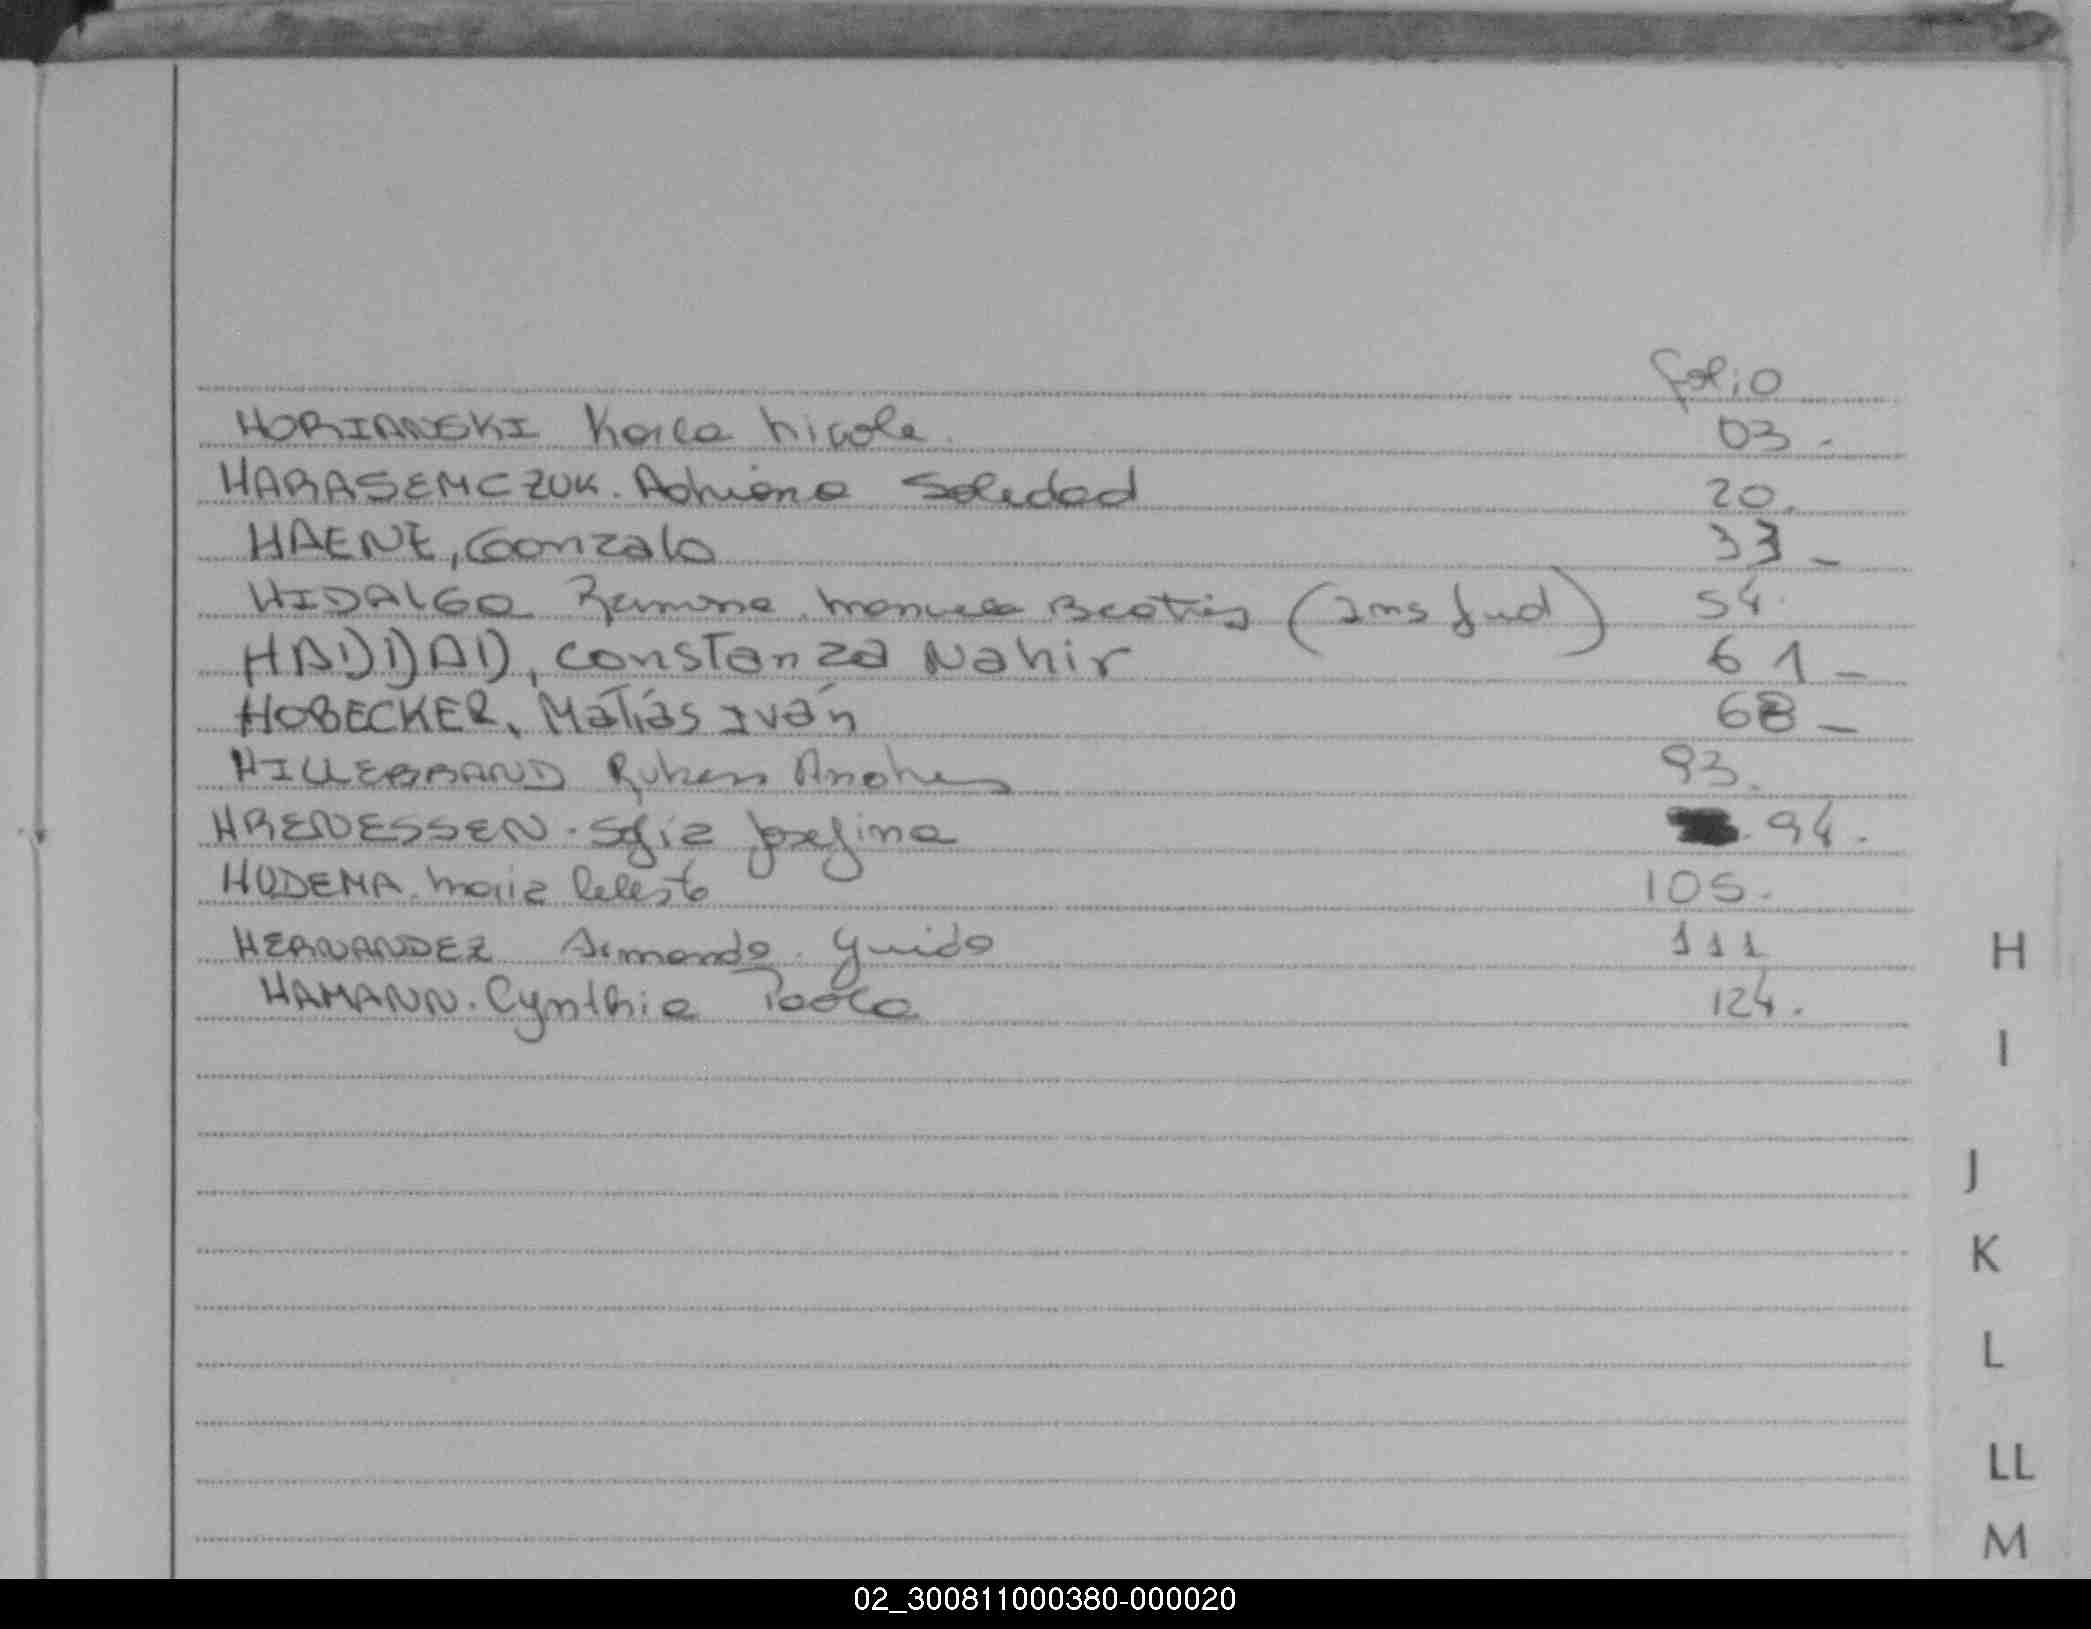 folio
HORIANSKI Karla Nicole. 03 -
HARASEMCZUK. Adriana Soledad 20.
HAENE, Gonzalo 33 _
HIDALGO Ramona Manuela Beatriz (Ins Jud) 54.
HADDAD, Constanza Nahir 61 _
HOBECKER, Matías Iván 68 _
HILLEBRAND Ruben Andres 93.
HRENESSEN. Sofia Josefina 94.
HUDEMA. Maria Celeste 105.
HERNANDEZ Armando Guido 111
HAMANN. Cynthia Paola 124.
H
I
J
K
L
LL
M
02_300811000380-000020